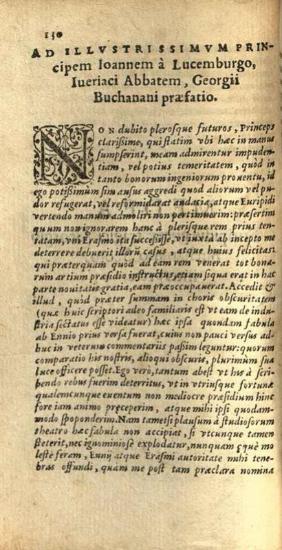 130
AD ILLVSTRISSIMVM PRIN-
cipem Ioannem à Lucemburgo,
Iueriaci Abbatem, Georgii
Buchanani præfatio.
NON dubito plerosque futuros, Princeps
clarissime, qui statim vbi hæc in manus
sumpserint, meam admirentur impuden
tiam, vel potius temeritatem, quòd in
tanto bonorum ingeniorum prouentu, id
ego potissimùm sim ausus aggredi quod aliorum vel pu
dor refugerat, vel reformidarat audacia, atque Euripidi
vertendo manum admoliri non pertimuerim: præsertim
quum non ignorarem hanc à plerisque rem prius ten-
tatam, vni Erasmo ita successisse, vt iuxtà ab incepto me
deterrere debuerit illorum casus, atque huius felicitas:
qui præterquam quòd ad eam rem venerat tot bona-
rum artium præsidio instructus, etiam siqua erat in hac
parte nouitatis gratia, eam præoccupauerat. Accedit &
illud, quòd præter summam in choris obscuritatem
(quæ huic scriptori adeo familiaris est vt eam de indu-
stria sectatus esse videatur) hæc ipsa quondam fabula
ab Ennio prius versa fuerat, cuius non pauci versus ad-
huc in veterum commentariis passim leguntur: quorum
comparatio his nostris, alioqui obscuris, plurimùm sua
luce officere posset. Ego verò, tantum abest vt his à scri-
bendo rebus fuerim deterritus, vt in vtrinsque fortunæ
qualemcunque euentum non mediocre præsidium hinc
fore iam animo præceperim, atque mihi ipsi quodam-
modo spoponderim. Nam tametsi plausum à studiosorum
theatro hæc fabula non accipiat, si vtcunque tamen
steterit, nec ignominiosè explodatur, nunquam equè mo
lestè feram, Ennij atque Erasmi autoritate mihi tene-
bras offundi, quam me post tam præclara nomina